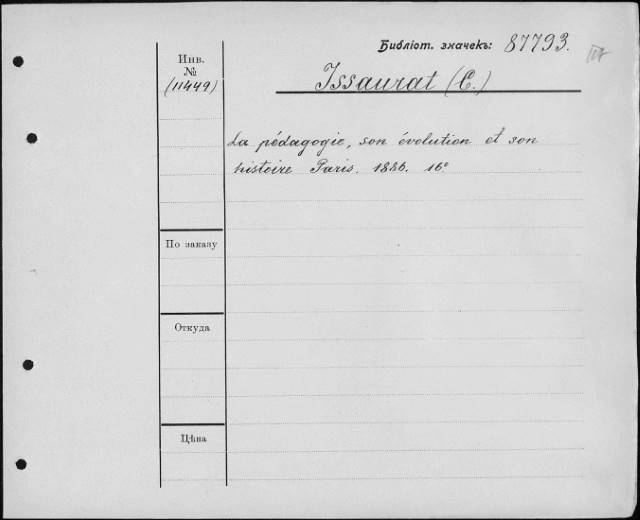 Библіот. значекъ: 87793.
Инв.
№
(11449)
Issaurat (C.)
La pédagogie, son évolution et son
histoire Paris. 1886. 16°
По заказу
Откуда
Цѣна